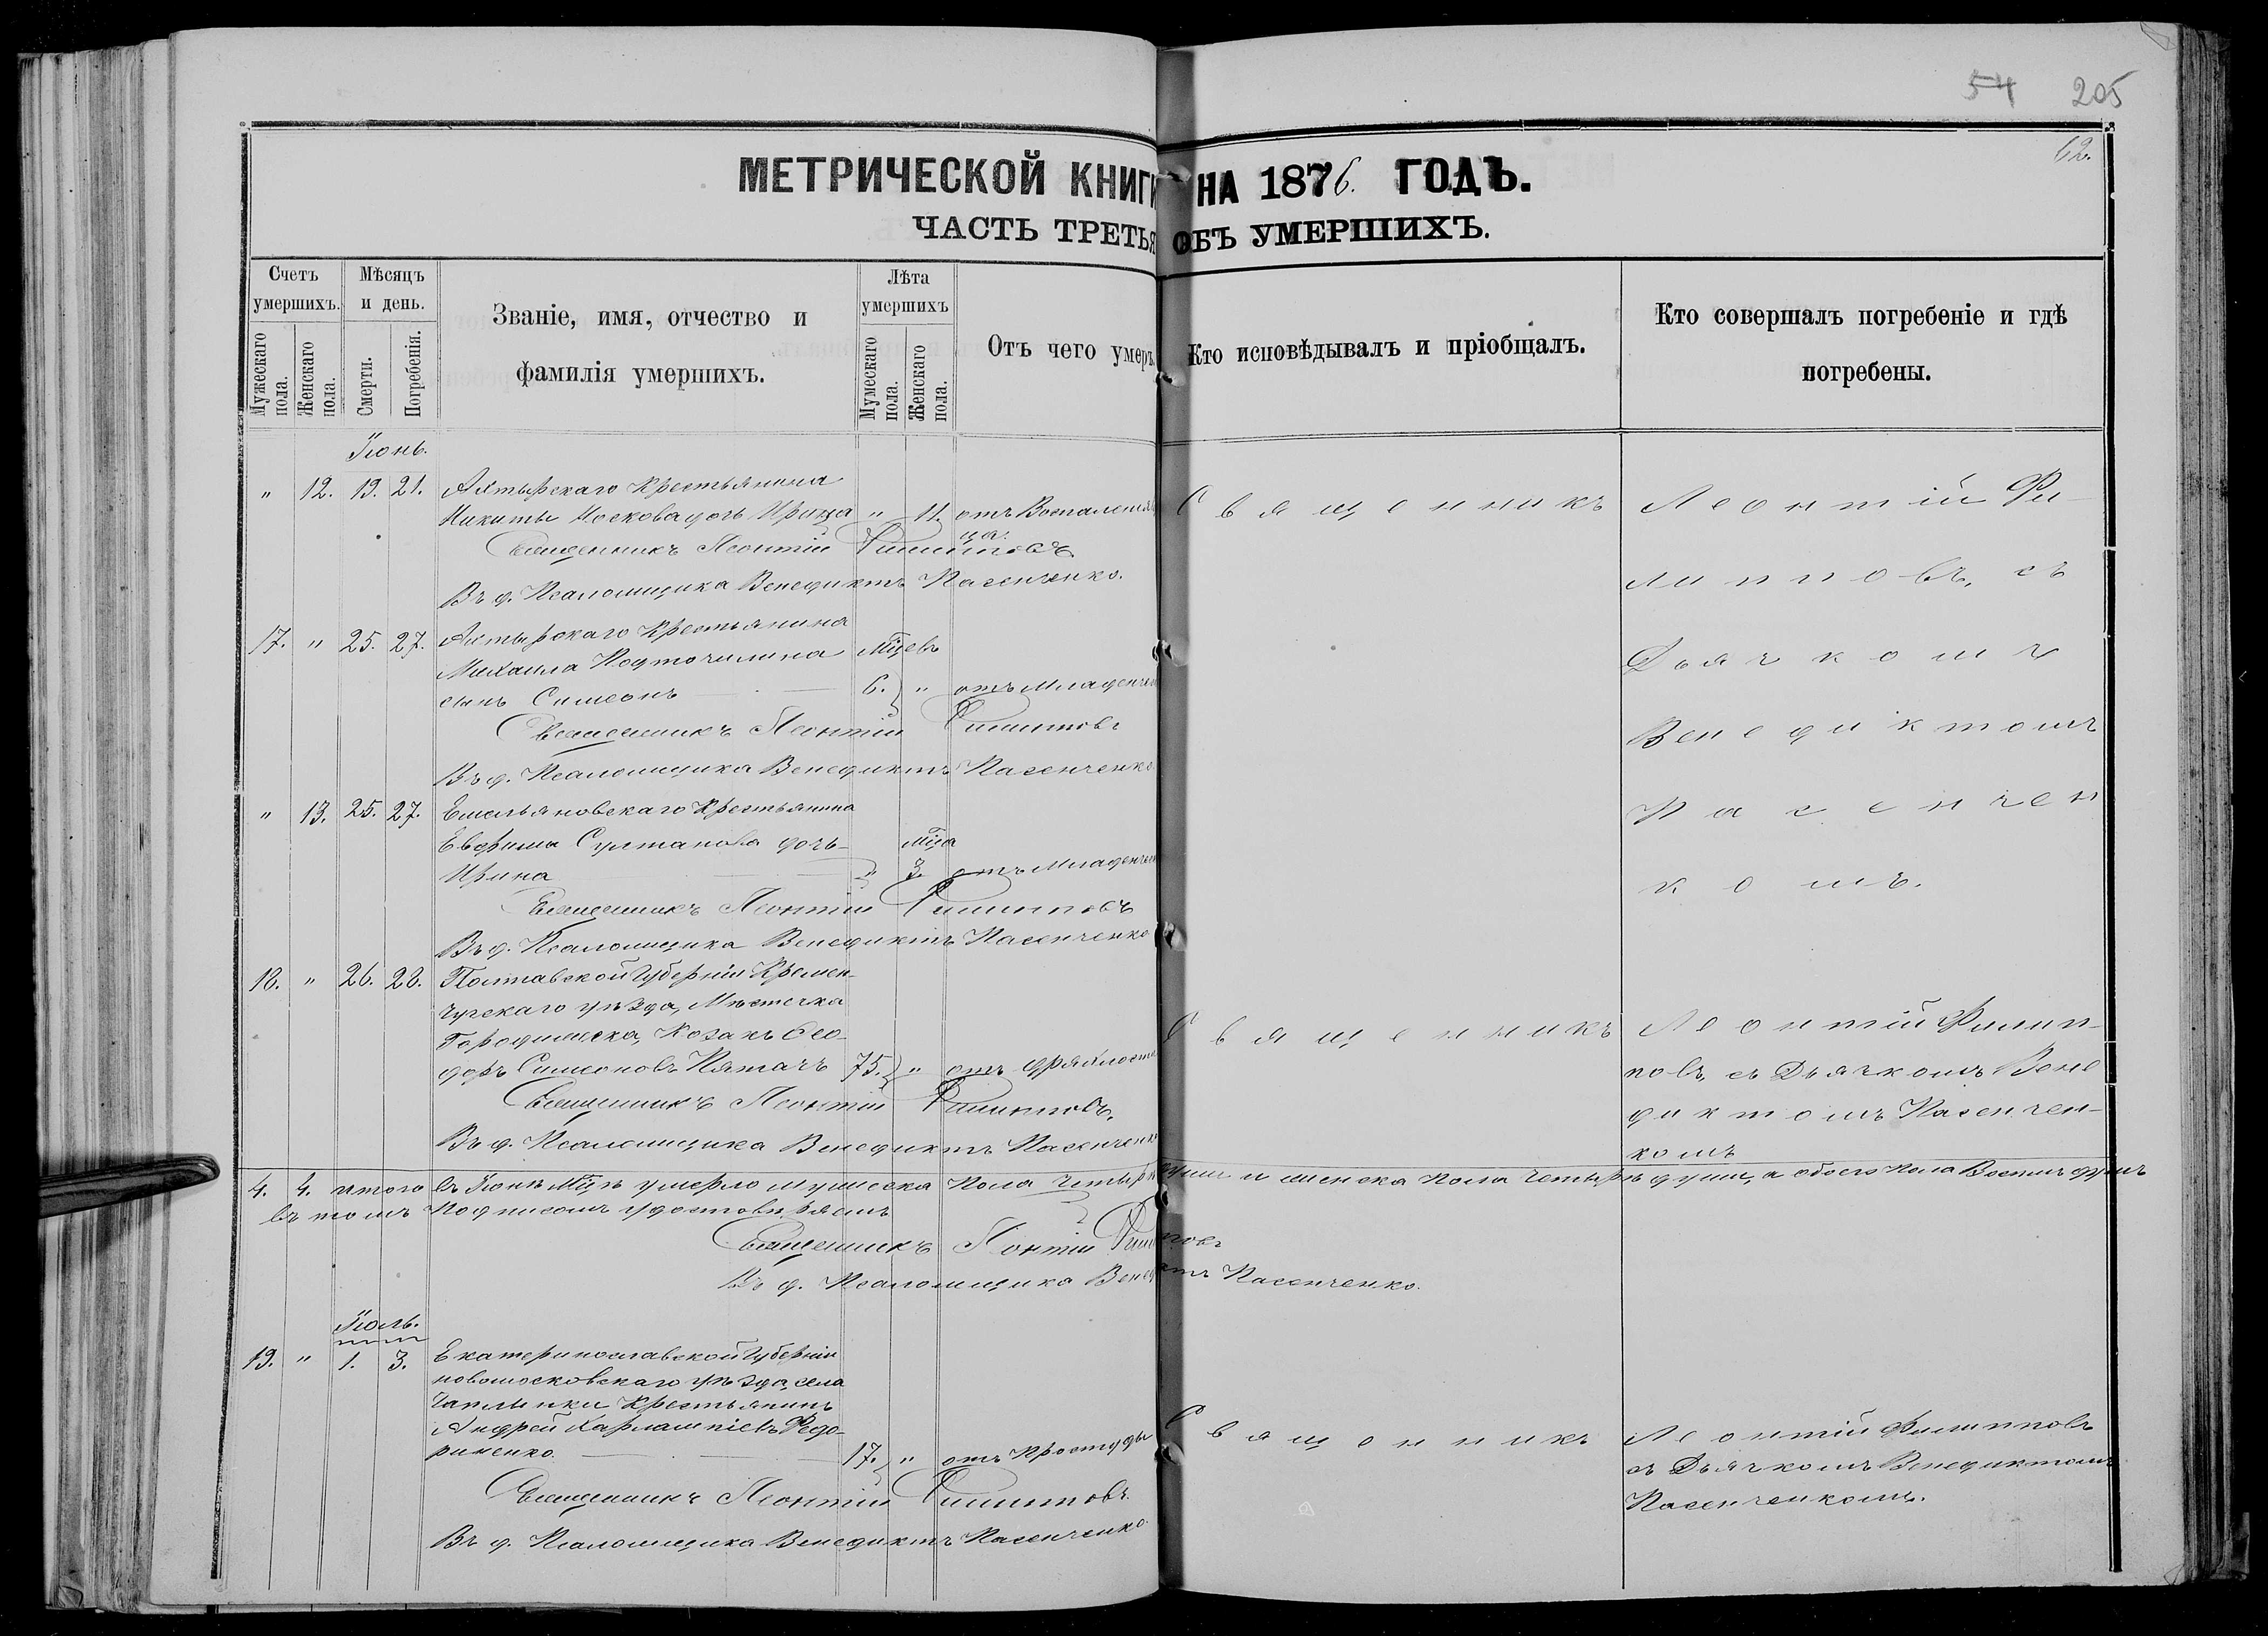 54 205
62.
МЕТРИЧЕСКОЙ КНИГИ НА 1876. ГОДЪ.
ЧАСТЬ ТРЕТЬЯ ОБЪ УМЕРШИХЪ.
Счетъ умершихъ.
Мужескаго пола.
Женскаго пола.
Мѣсяцъ и день.
Смерти.
Погребенія.
Званіе, имя, отчество и
фамилія умершихъ.
Лѣта умершихъ
Мумескаго пола.
Женскаго пола.
Отъ чего умеръ.
Кто исповѣдывалъ и пріобщалъ.
Кто совершалъ погребеніе и гдѣ
погребены.
Іюнь.
" 12. 19. 21. Ахтырскаго Крестьянина
Никиты Носкова дочь Ирина " 11. отъ Воспаленія Священникъ Леонтій Фи-
Священникъ Леонтій Филипповъ
липповъ, съ
Въ д. Псаломщика Венедиктъ Пасенченко.
17. " 25. 27. Ахтырскаго Крестьянина
Михаила Подточилина Мцевъ
Дьячкомъ
сынъ Симеонъ 6. " отъ Младенчес
Священникъ Леонтій Филипповъ
Венедиктомъ
Въ д. Псаломщика Венедиктъ Пасенченко
" 13. 25. 27. Емельяновскаго Крестьянина
Пасенчен
Евфима Султанова дочь Мца
Ирина " 3. отъ Младенчес
комъ.
Священникъ Леонтій Филипповъ
Въ д. Псаломщика Венедиктъ Пасенченко
18. " 26. 28. Полтавской Губерніи Кремен-
чугскаго уѣзда, Мѣстечка
Городижска, Козакъ Ѳео-
Священникъ Леонтій Филип-
доръ Симеоновъ Пятачъ 75. " отъ дряхлости
повъ, съ Дьячкомъ Вене
Священникъ Леонтій Филипповъ,
диктомъ Пасенчен-
Въ д. Псаломщика Венедиктъ Пасенченко
комъ
4. 4. итого въ Іюнѣ Мцѣ умерло мужеска пола четыри души и женска пола четырѣ души, а обоего пола Восемь душъ
въ томъ Подписомъ удостовѣряемъ
Священникъ Леонтій Филипповъ
Въ д. Псаломщика Венедиктъ Пасенченко.
Іюль.
19. " 1. 3. Екатеринославской Губерніи
новомосковскаго уѣзда, села
Чаплинки Крестьянинъ
Андрей Харлампіевъ Федо-
Священникъ Леонтій Филипповъ
риненко. 17. " отъ Простуды
съ Дьячкомъ Венедиктомъ
Священникъ Леонтій Филипповъ.
Пасенченкомъ.
Въ д. Псаломщика Венедиктъ Пасенченко